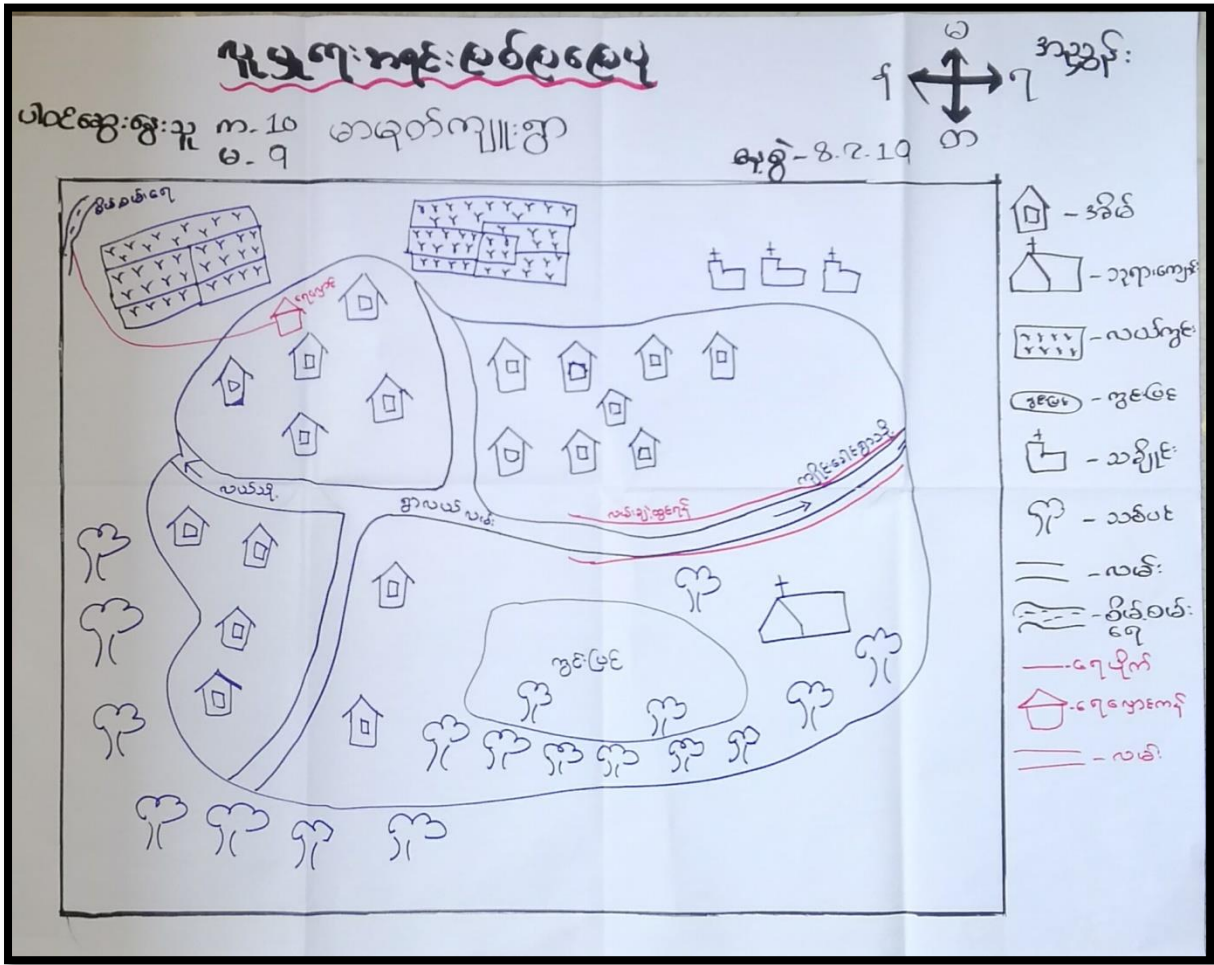 လူမှုရေးအရင်းမြစ်ပြမြေပုံ
ပါဝင်ဆွေးနွေးသူ က-10
မ-၅
မာမုတ်ကျူးရွာ
နေ့စွဲ-8.2.19
မ
န
ရ
တ
အညွှန်း
စိမ့်စမ်းရေ
ရေလှောင်
လယ်သို့
ရွာလယ်လမ်း
လမ်းချဲ့ထွင်ရန်
ကွင်းပြင်
-အိမ်
-ဘုရားကျောင်း
-လယ်ကွင်း
ကွင်းပြင်
-ကွင်းပြင်
-သင်္ချိုင်း
-သစ်ပင်
-လမ်း
-စိမ့်စမ်း
ရေ
-ရေပိုက်
-ရေလှောင်ကန်
-လမ်း